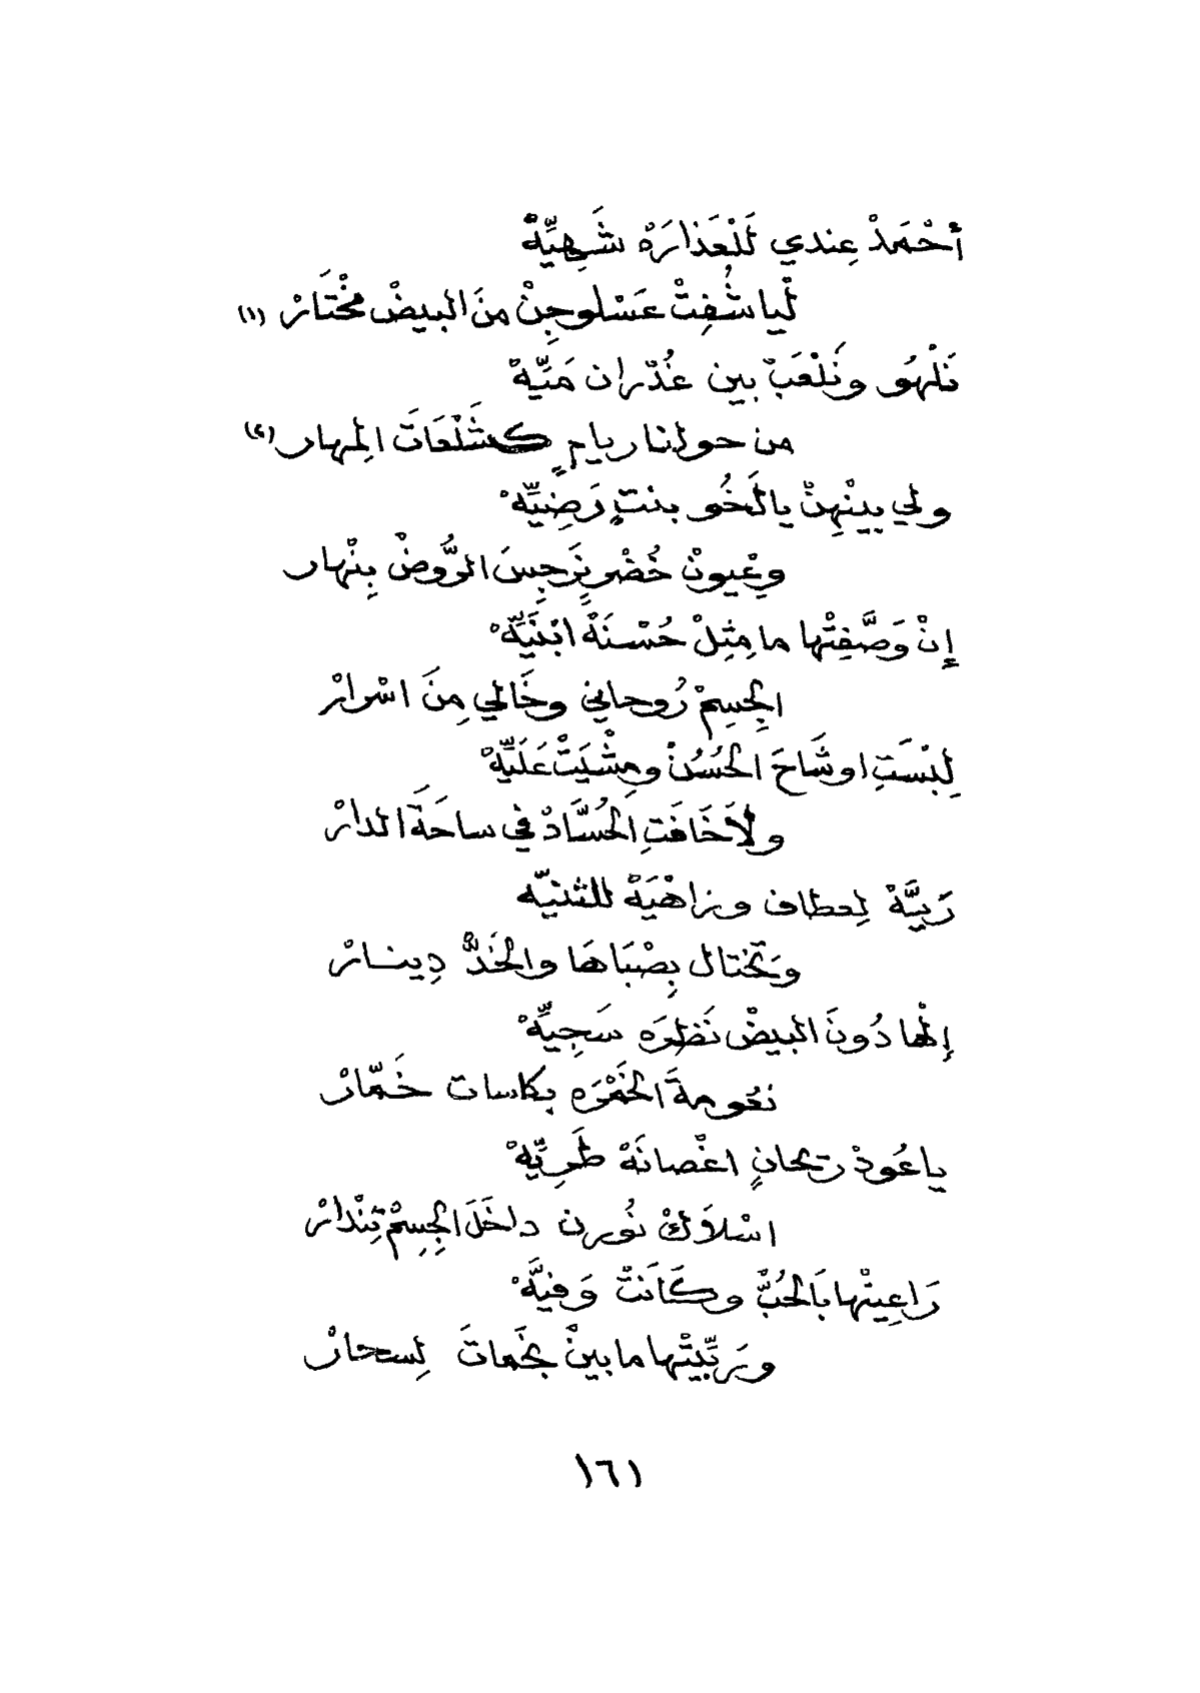 أحْمَدْ عِندي لَلْعَذارَهْ شَهِيِّهْ
لْيا شُفِتْ عَسْلوجِنْ منَ البيضْ مخْتَارْ (١)
نَلْهُو ونَلْعَبْ بين غُدْران مَيِّهْ
من حولنا ريامٍ كشَلْعَاتَ المِهار (٢)
ولي بينْهِنْ يالَخُو بنتٍ رَضِيِّهْ
وِعْيونْ خُضْرٍ نَرجِسَ الرُّوضْ بِنْهار
إِنْ وَصَّفِتْها ما مِثِلْ حُسْنَهْ ابْنَيِّهْ
الجِسِمْ رُوحاني وخَالي مِنَ اسْرارْ
لِبْسَتِ اوشَاحَ الحُسُنْ ومِشْيَتْ عَلَيِّهْ
ولاَخَافَتِ الحُسَّادْ في ساحَةَ الدارْ
رَبِيَّهْ لِعطاف وزاهْيَهْ للثنيّه
وتَختال بِصْبَاهَا والخَدّْ دِينارْ
إلْها دُونَ البيضْ نَظرَه سَجِيِّهْ
نعُومةَ الخَمْرَه بكاسات خَمّارْ
يا عُودْ ريحانٍ اغْصانَهْ طَرِيِّهْ
اسْلاَكْ نُورن داخَلَ الجِسِمْ تِنْدارْ
رَاعِيتْها بَالحُبّْ وكَانَتْ وَفيَّهْ
ورَبِّيتْها ما بينْ نجَماتَ لِسحارْ
١٦١